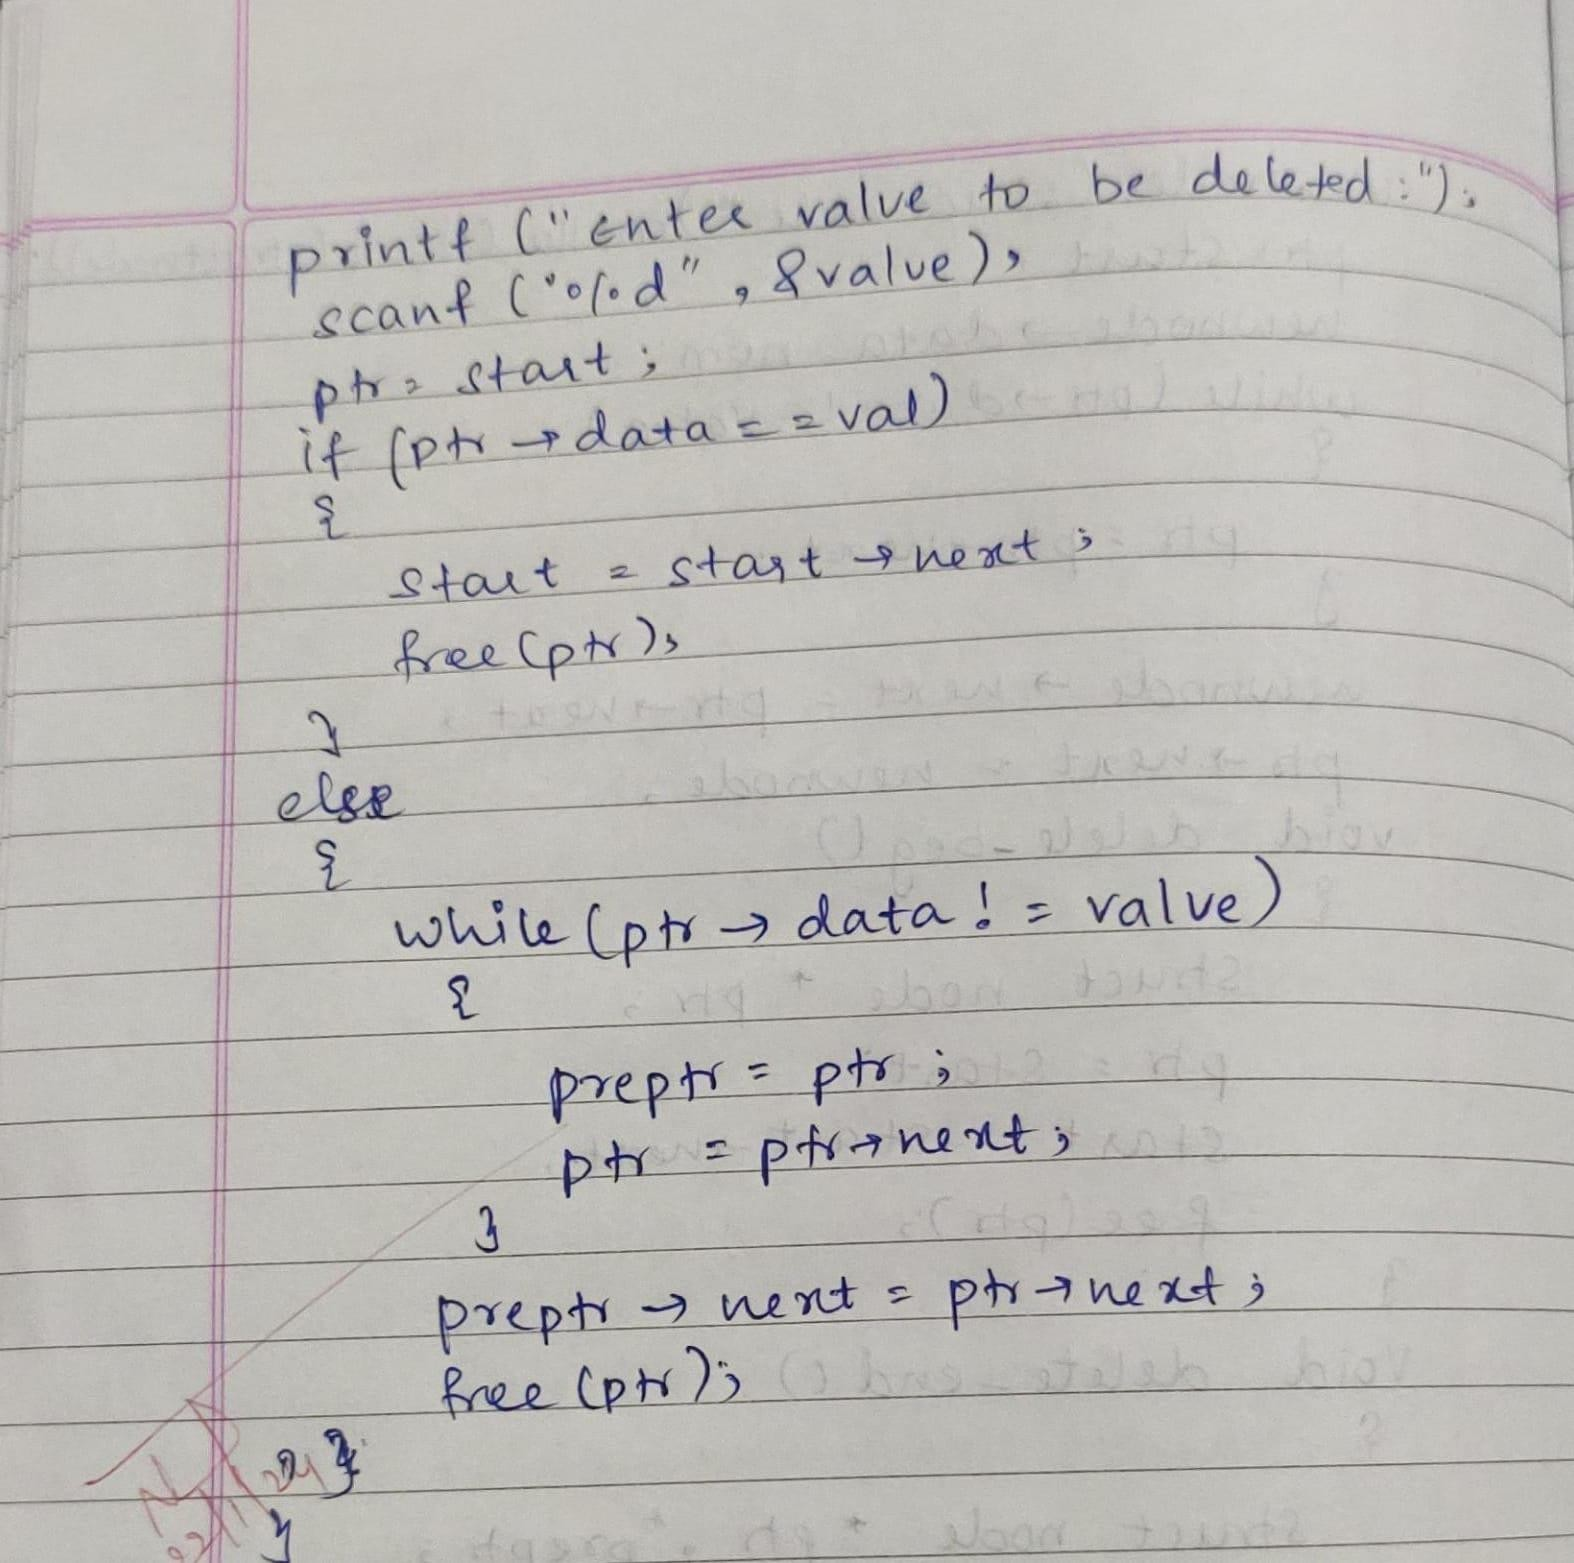 printf ("Enter value to be deleted:");
scanf ("%d", &value);
ptr = start;
if (ptr → data == val)
{
start = start → next;
free (ptr);
}
else
{
while (ptr → data != value)
{
preptr = ptr;
ptr = ptr → next;
}
preptr → next = ptr → next;
free (ptr);
}
}